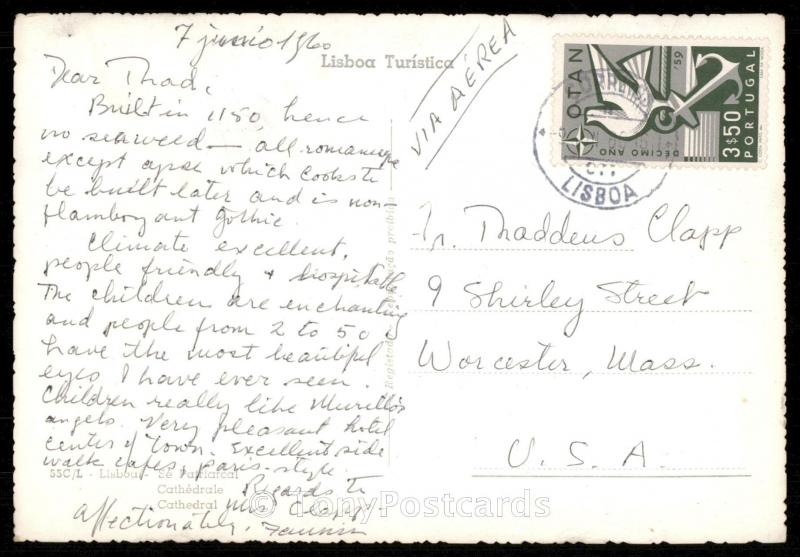 7 junio 1960
Lisboa Turística
VIA AÉREA
Dear Thad,
Built in 1150, hence
no seaweed — all romanesque
except apse which looks to
be built later and is non-
flamboyant Gothic.
Climate excellent,
people friendly + hospitable
The children are enchanting
and people from 2 to 50
have the most beautiful
eyes I have ever seen.
Children really like Murillo's
angels. Very pleasant hotel
center of town. Excellent side
walk cafes, paris-style.
Regards to
Mrs. Clapp
Affectionately,
55C/L - Lisboa - Sé Patriarcal
Cathédrale
Cathedral
OTAN
DÉCIMO ANO
'59
3$50 PORTUGAL
CORREIOS
CTT
LISBOA
Thaddeus Clapp
9 Shirley Street
Worcester, Mass.
U. S. A.
© TonyPostcards